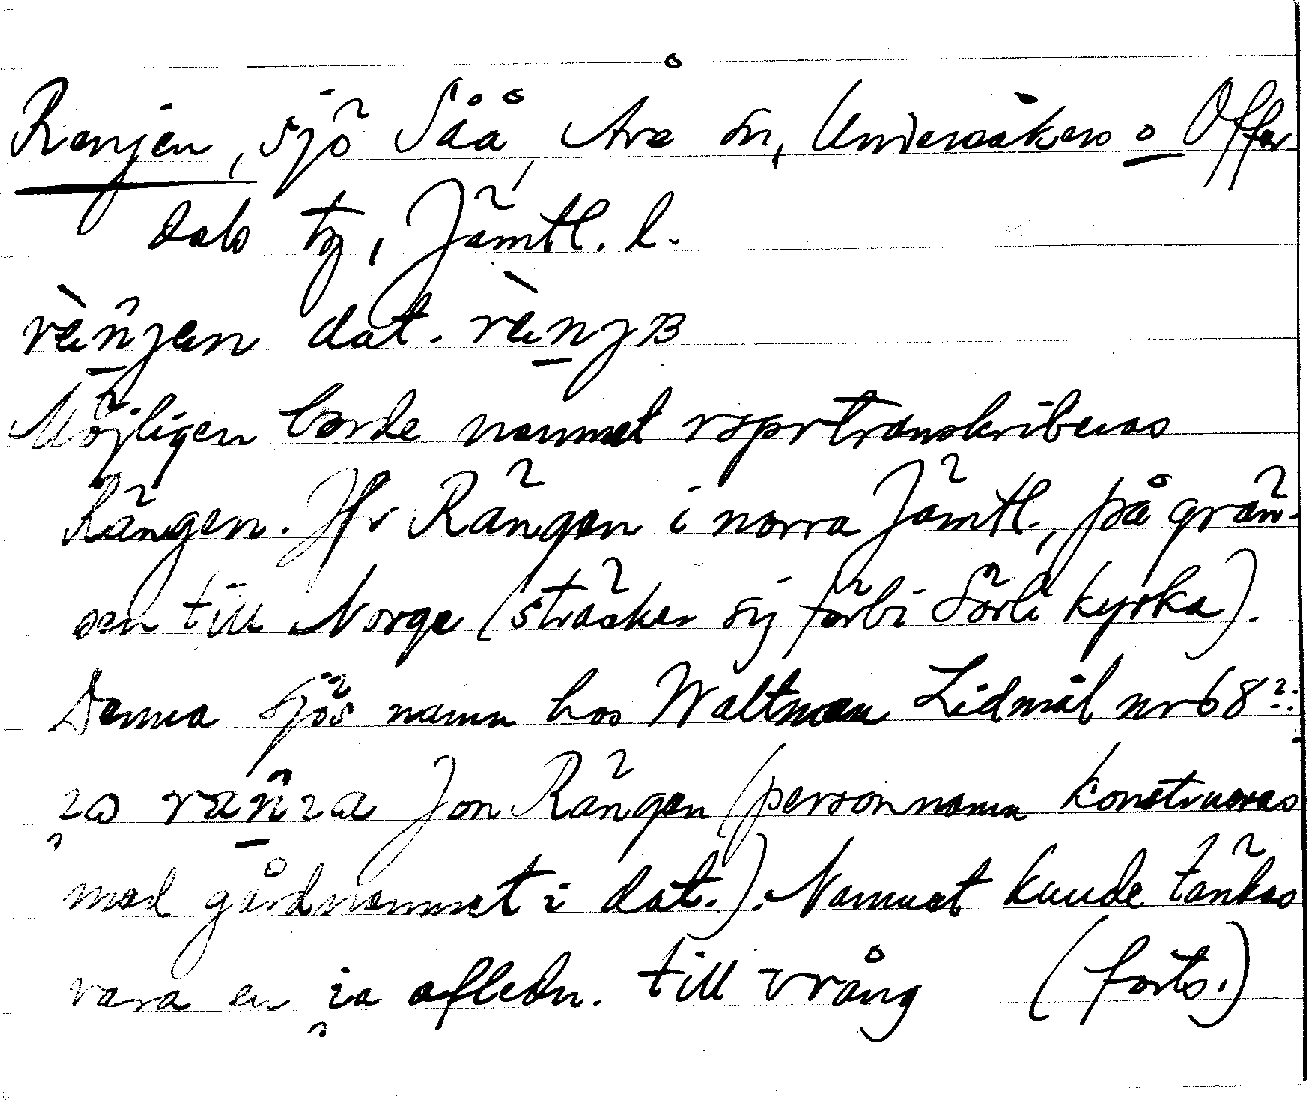 Renjen, sjö Såå, Åre sn, Undersåkers o Offer-
dals tg, Jämtl. l.
rènjen dat. rènjB
Möjligen borde namnet rsprtranskriberas
Rängen. Jfr Rängen i norra Jämtl., på grän-
sen till Norge (sträcker sig förbi Sörli kyrka).
Denna sjös namn hos Waltman Lidmål nr 68²:
Jon Rängen (personnamn konstrueras
med gårdnamnet i dat.). Namnet kunde tänkas
vara en ia afledn. till vrång (forts.)